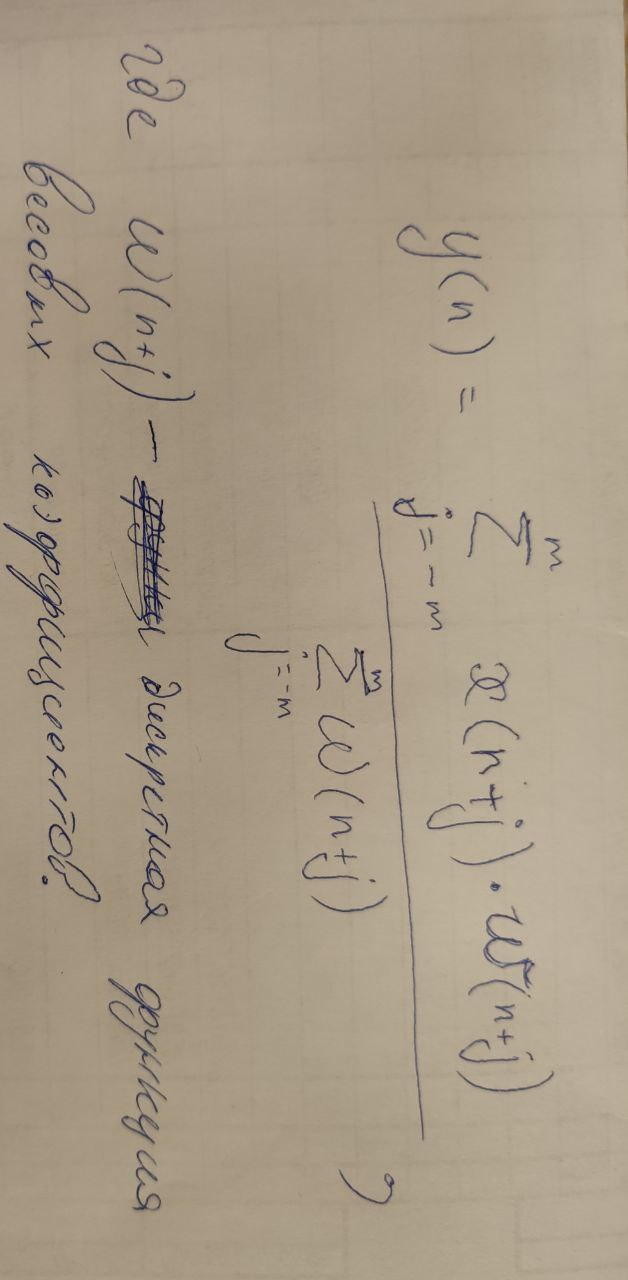 y(n) = \frac{\sum_{j=-m}^{m} x(n+j) \cdot w(n+j)}{\sum_{j=-m}^{m} w(n+j)} ,
где w(n+j) — дискретная функция
весовых коэффициентов.